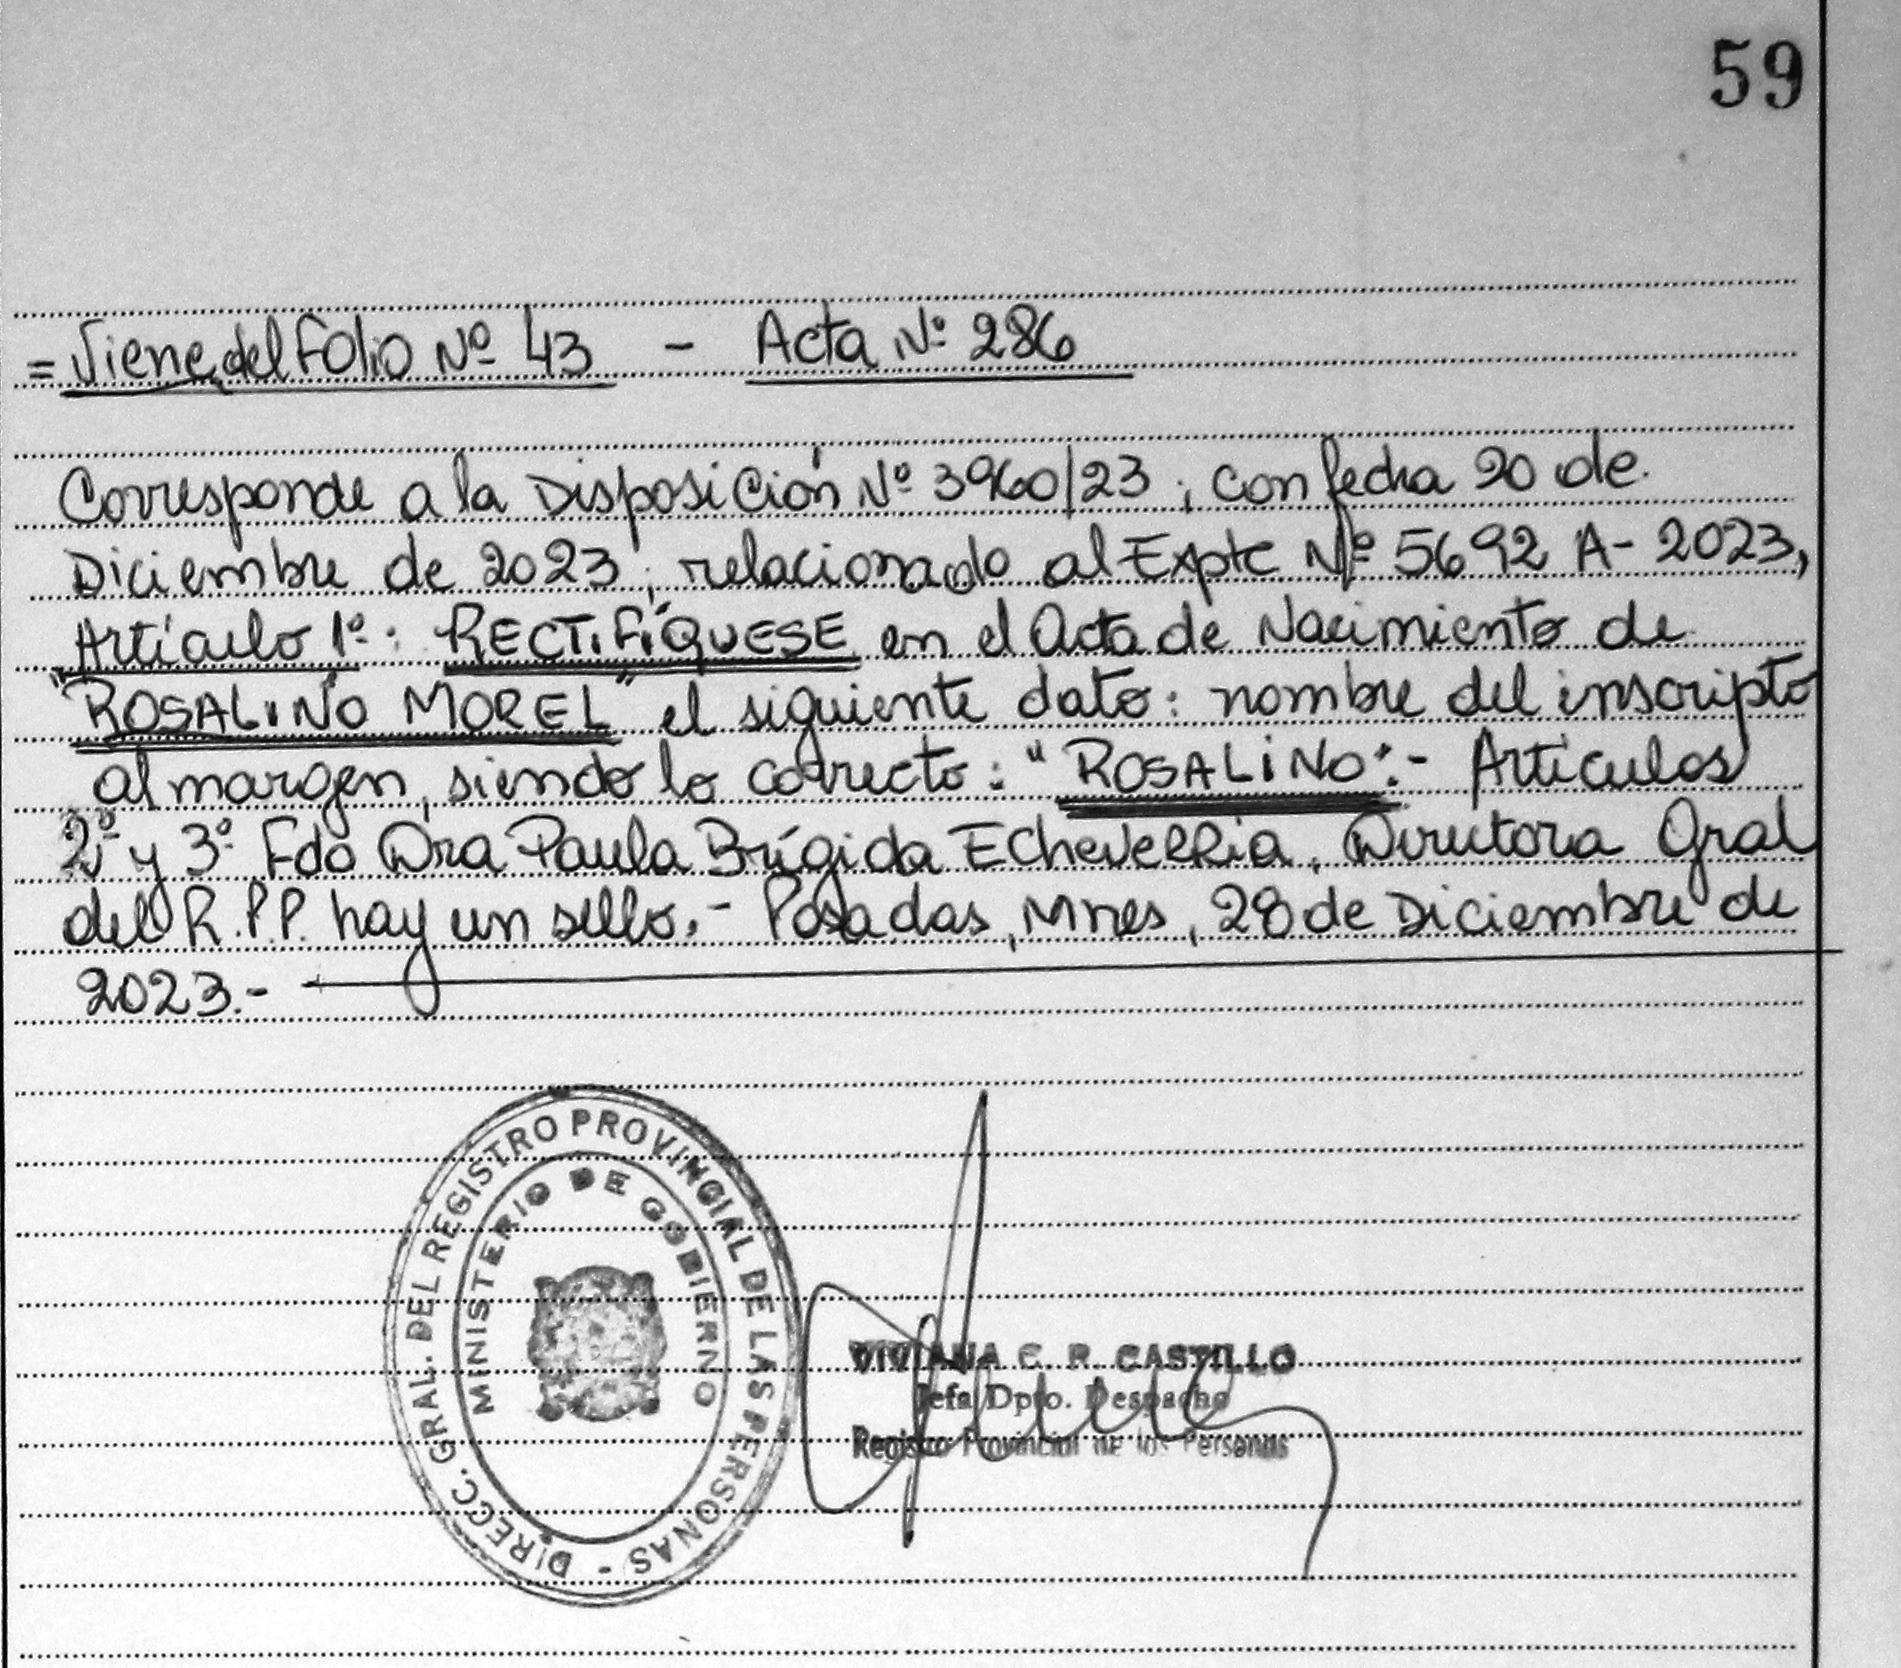 59
= Viene del Folio Nº 43 - Acta Nº 286
Corresponde a la Disposición Nº 3960/23, con fecha 20 de
Diciembre de 2023, relacionado al Expte Nº 5692 A- 2023,
Artículo 1º: RECTIFÍQUESE en el Acta de Nacimiento de
"ROSALINO MOREL" el siguiente dato: nombre del inscripto
al margen, siendo lo correcto: "ROSALINO".- Artículos
2º y 3º Fdo Dra Paula Brígida Echeverria, Directora Gral
del R.P.P. hay un sello.- Posadas, Mnes, 28 de Diciembre de
2023.-
DIRECC. GRAL. DEL REGISTRO PROVINCIAL DE LAS PERSONAS -
MINISTERIO DE GOBIERNO
VIVIANA E. R. CASTILLO
Jefa Dpto. Despacho
Registro Provincial de las Personas